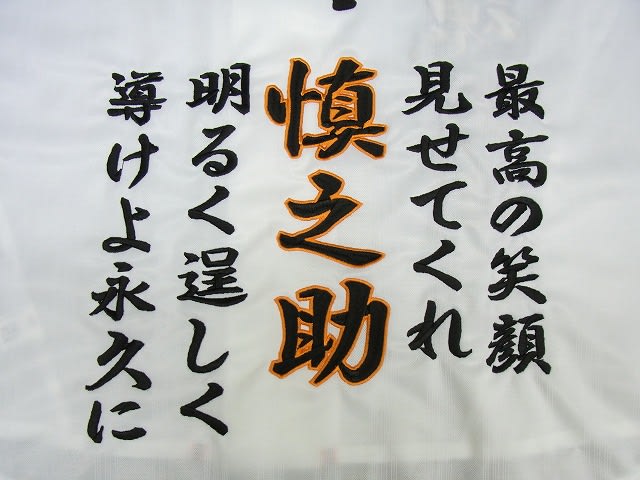 最高の笑顔
見せてくれ
慎之助
明るく逞しく
導けよ永久に